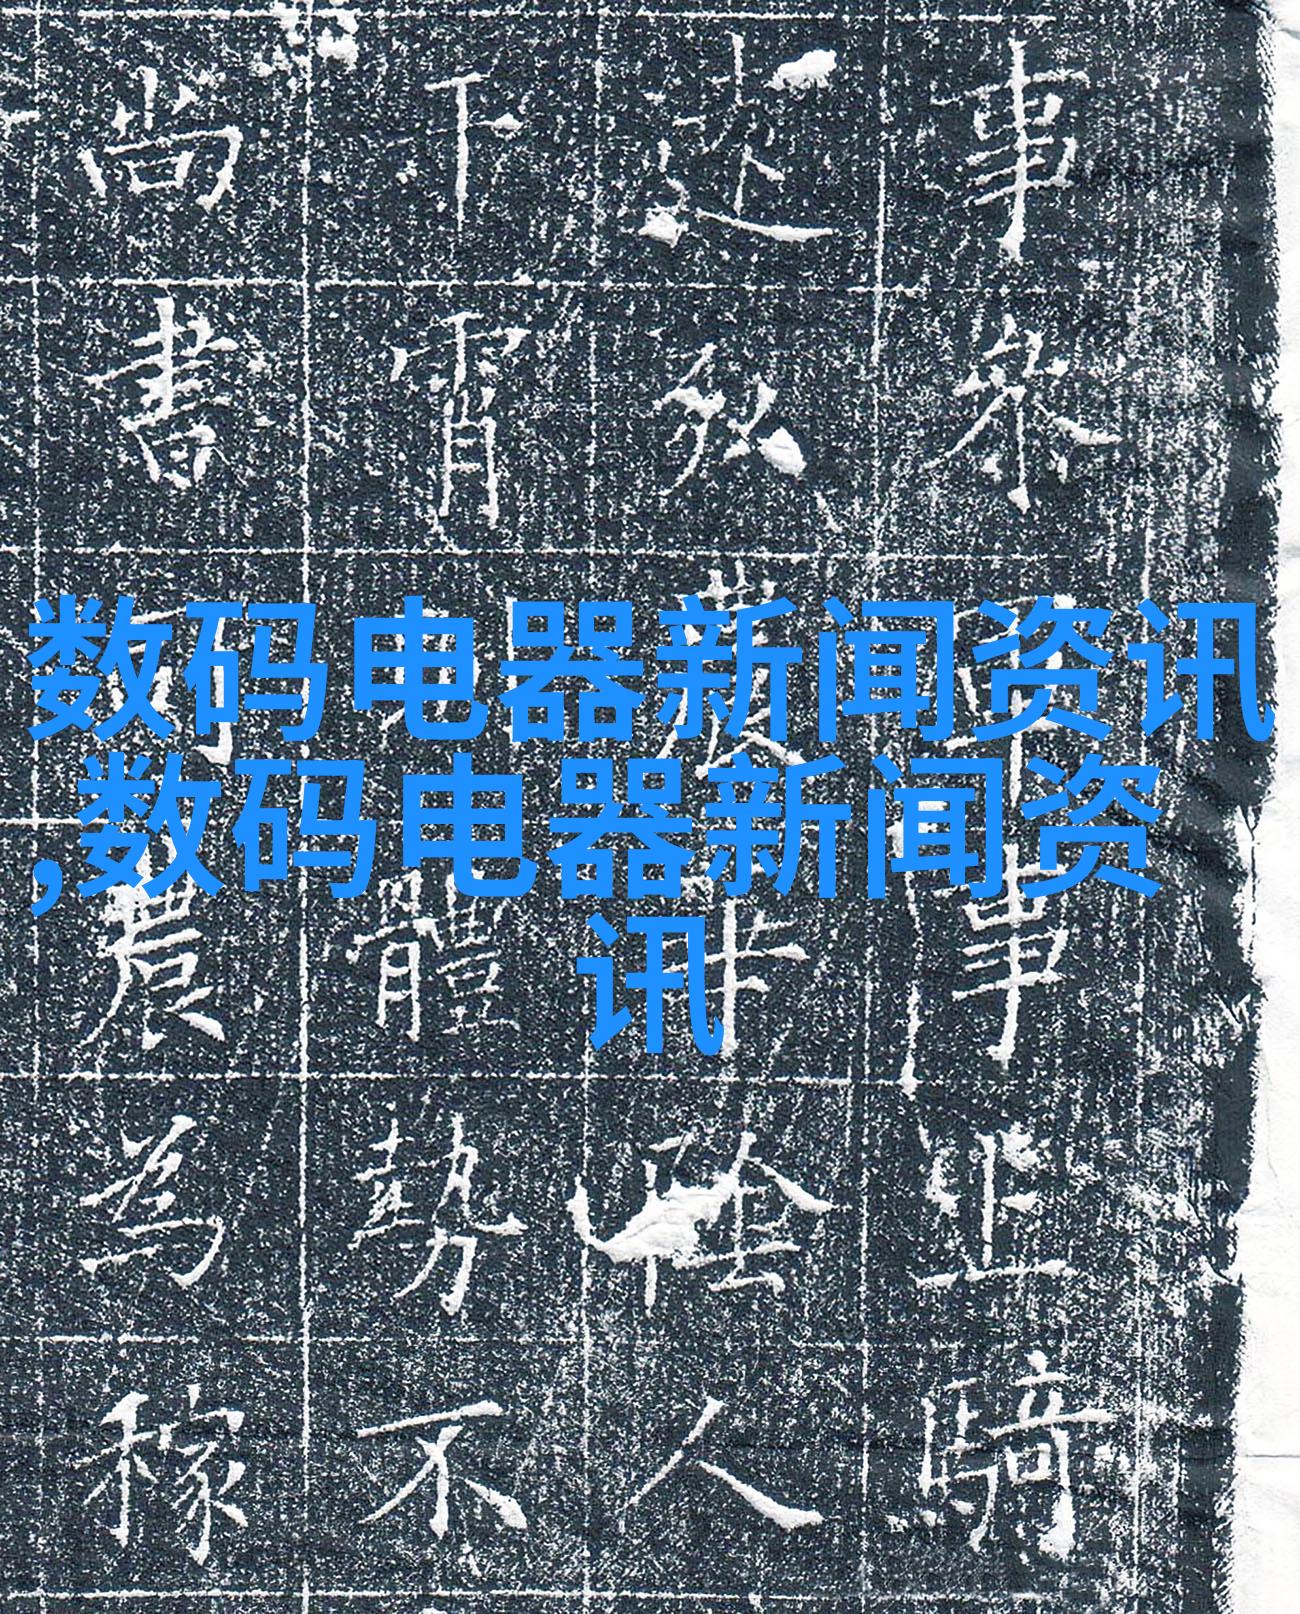 数码电器新闻资讯
,数码电器新闻资
讯
事事騎
陰人
下霄體勢不
尚書司農為稼